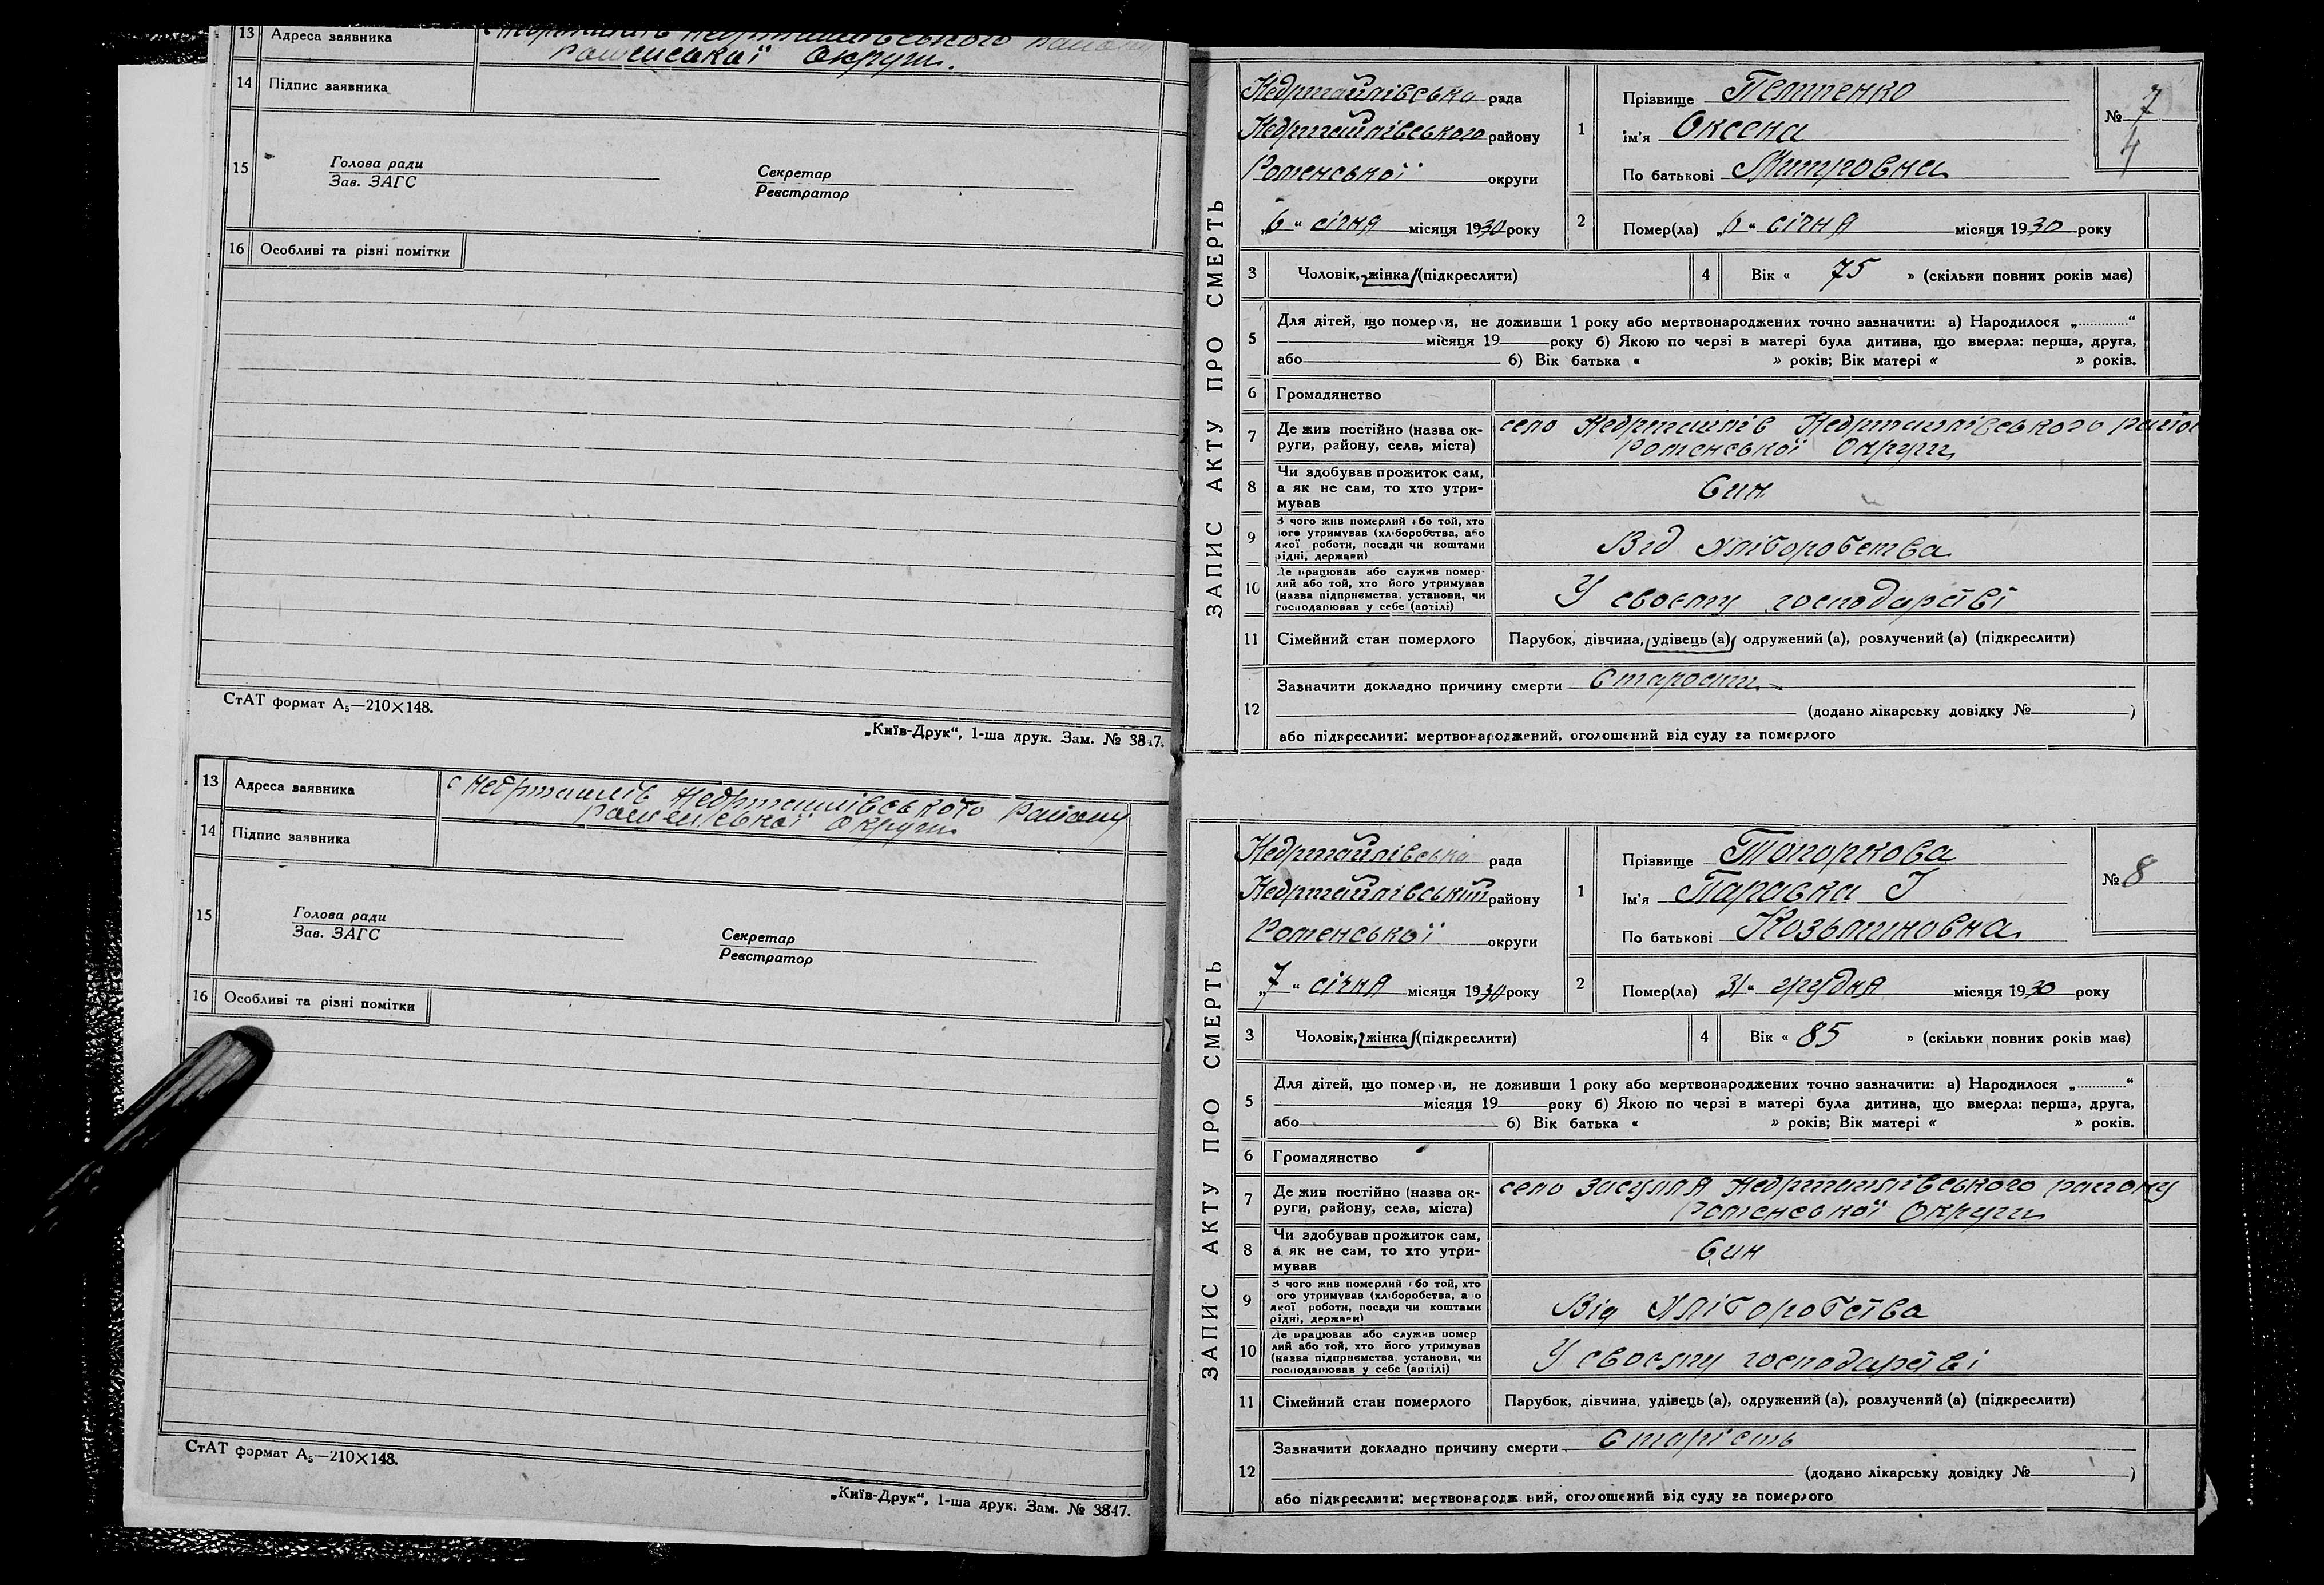 13 Адреса заявника
Роменської Округи.
14 Підпис заявника
15 Голова ради
Зав. ЗАГС
Секретар
Реєстратор
16 Особливі та різні помітки
СтАТ формат А₅—210×148.
„Київ-Друк“, 1-ша друк. Зам. № 3847.
13 Адреса заявника с Недригайлів Недригайлівського Району
Роменської Округи
14 Підпис заявника
15 Голова ради
Зав. ЗАГС
Секретар
Реєстратор
16 Особливі та різні помітки
СтАТ формат А₅—210×148.
„Київ-Друк“, 1-ша друк. Зам. № 3847.
ЗАПИС АКТУ ПРО СМЕРТЬ
Недригайлівська рада
Недригайлівського району
Роменської округи
„6“ січня місяця 1930 року
1 Прізвище
Ім'я Оксена
По батькові Митровна
№ 7
4
2 Помер(ла) „6“ січня місяця 1930 року
3 Чоловік, жінка (підкреслити)
4 Вік « 75 » (скільки повних років має)
5 Для дітей, що померли, не доживши 1 року або мертвонароджених точно зазначити: а) Народилося „............“
місяця 19 року б) Якою по черзі в матері була дитина, що вмерла: перша, друга,
або б) Вік батька « » років; Вік матері « » років.
6 Громадянство
7 Де жив постійно (назва ок-
руги, району, села, міста)
село Недригайлів Недригайлівського
Роменської Округи
8 Чи здобував прожиток сам,
а як не сам, то хто утри-
мував
Син
9 З чого жив померлий або той, хто
його утримував (хліборобства, або
якої роботи, посади чи коштами
рідні, держави)
Від Хліборобства
10 Де працював або служив помер-
лий або той, хто його утримував
(назва підприємства, установи, чи
господарював у себе (артілі)
У своєму господарстві
11 Сімейний стан померлого Парубок, дівчина, удівець (а), одружений (а), розлучений (а) (підкреслити)
12 Зазначити докладно причину смерти
(додано лікарську довідку № )
або підкреслити: мертвонароджений, оголошений від суду за померлого
ЗАПИС АКТУ ПРО СМЕРТЬ
Недригайлівська рада
Недригайлівський району
Роменської округи
„7“ січня місяця 1930 року
1 Прізвище Топоркова
Ім'я Параска
По батькові Козьминовна
№ 8
2 Помер(ла) „31“ грудня місяця 1930 року
3 Чоловік, жінка (підкреслити)
4 Вік « 85 » (скільки повних років має)
5 Для дітей, що померли, не доживши 1 року або мертвонароджених точно зазначити: а) Народилося „............“
місяця 19 року б) Якою по черзі в матері була дитина, що вмерла: перша, друга,
або б) Вік батька « » років; Вік матері « » років.
6 Громадянство
7 Де жив постійно (назва ок-
руги, району, села, міста)
село Засулля Недригайлівського району
Роменської Округи
8 Чи здобував прожиток сам,
а як не сам, то хто утри-
мував
Син
9 З чого жив померлий або той, хто
його утримував (хліборобства, або
якої роботи, посади чи коштами
рідні, держави)
Від Хліборобства
10 Де працював або служив помер-
лий або той, хто його утримував
(назва підприємства, установи, чи
господарював у себе (артілі)
У своєму господарстві
11 Сімейний стан померлого Парубок, дівчина, удівець (а), одружений (а), розлучений (а) (підкреслити)
12 Зазначити докладно причину смерти Старість
(додано лікарську довідку № )
або підкреслити: мертвонароджений, оголошений від суду за померлого